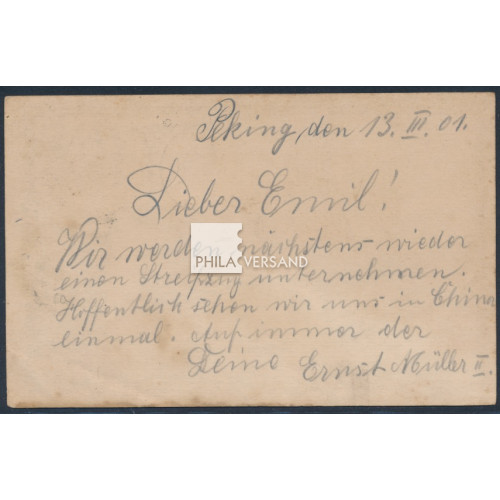 Peking, den 13. III. 01.
Lieber Emil!
Wir werden nächstens wieder
PHILA VERSAND
einen Streifzug unternehmen.
Hoffentlich sehen wir uns in China
einmal. Auf immer der
Deine Ernst Müller II.